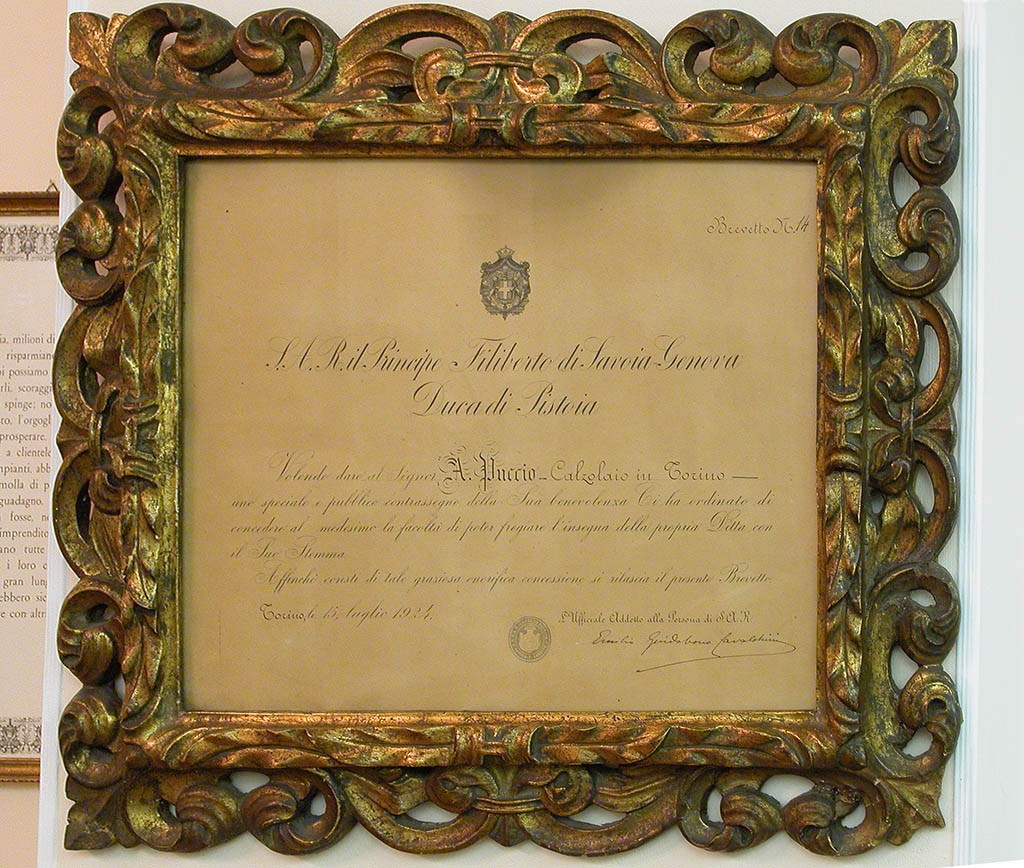 Brevetto N. 14
S. A. R. il Principe Filiberto di Savoia-Genova
Duca di Pistoia
Volendo dare al Signor A. Puccio - Calzolaio in Torino -
uno speciale e pubblico contrassegno della Sua benevolenza Ci ha ordinato di
concedere al medesimo la facoltà di poter fregiare l'insegna della propria Ditta con
il Suo Stemma
Affinchè consti di tale graziosa onorifica concessione si rilascia il presente Brevetto
Torino, le 15 Luglio 1924.
L'Ufficiale Addetto alla Persona di S.A.R.
milioni di
risparmian
possiamo
scoraggi
spinge; no
l'orgogl
prosperare,
a clientele
abb
molla di p
guadagno.
fosse, n
imprendito
ano tutte
i loro c
gran lung
ebbero sie
e con altri